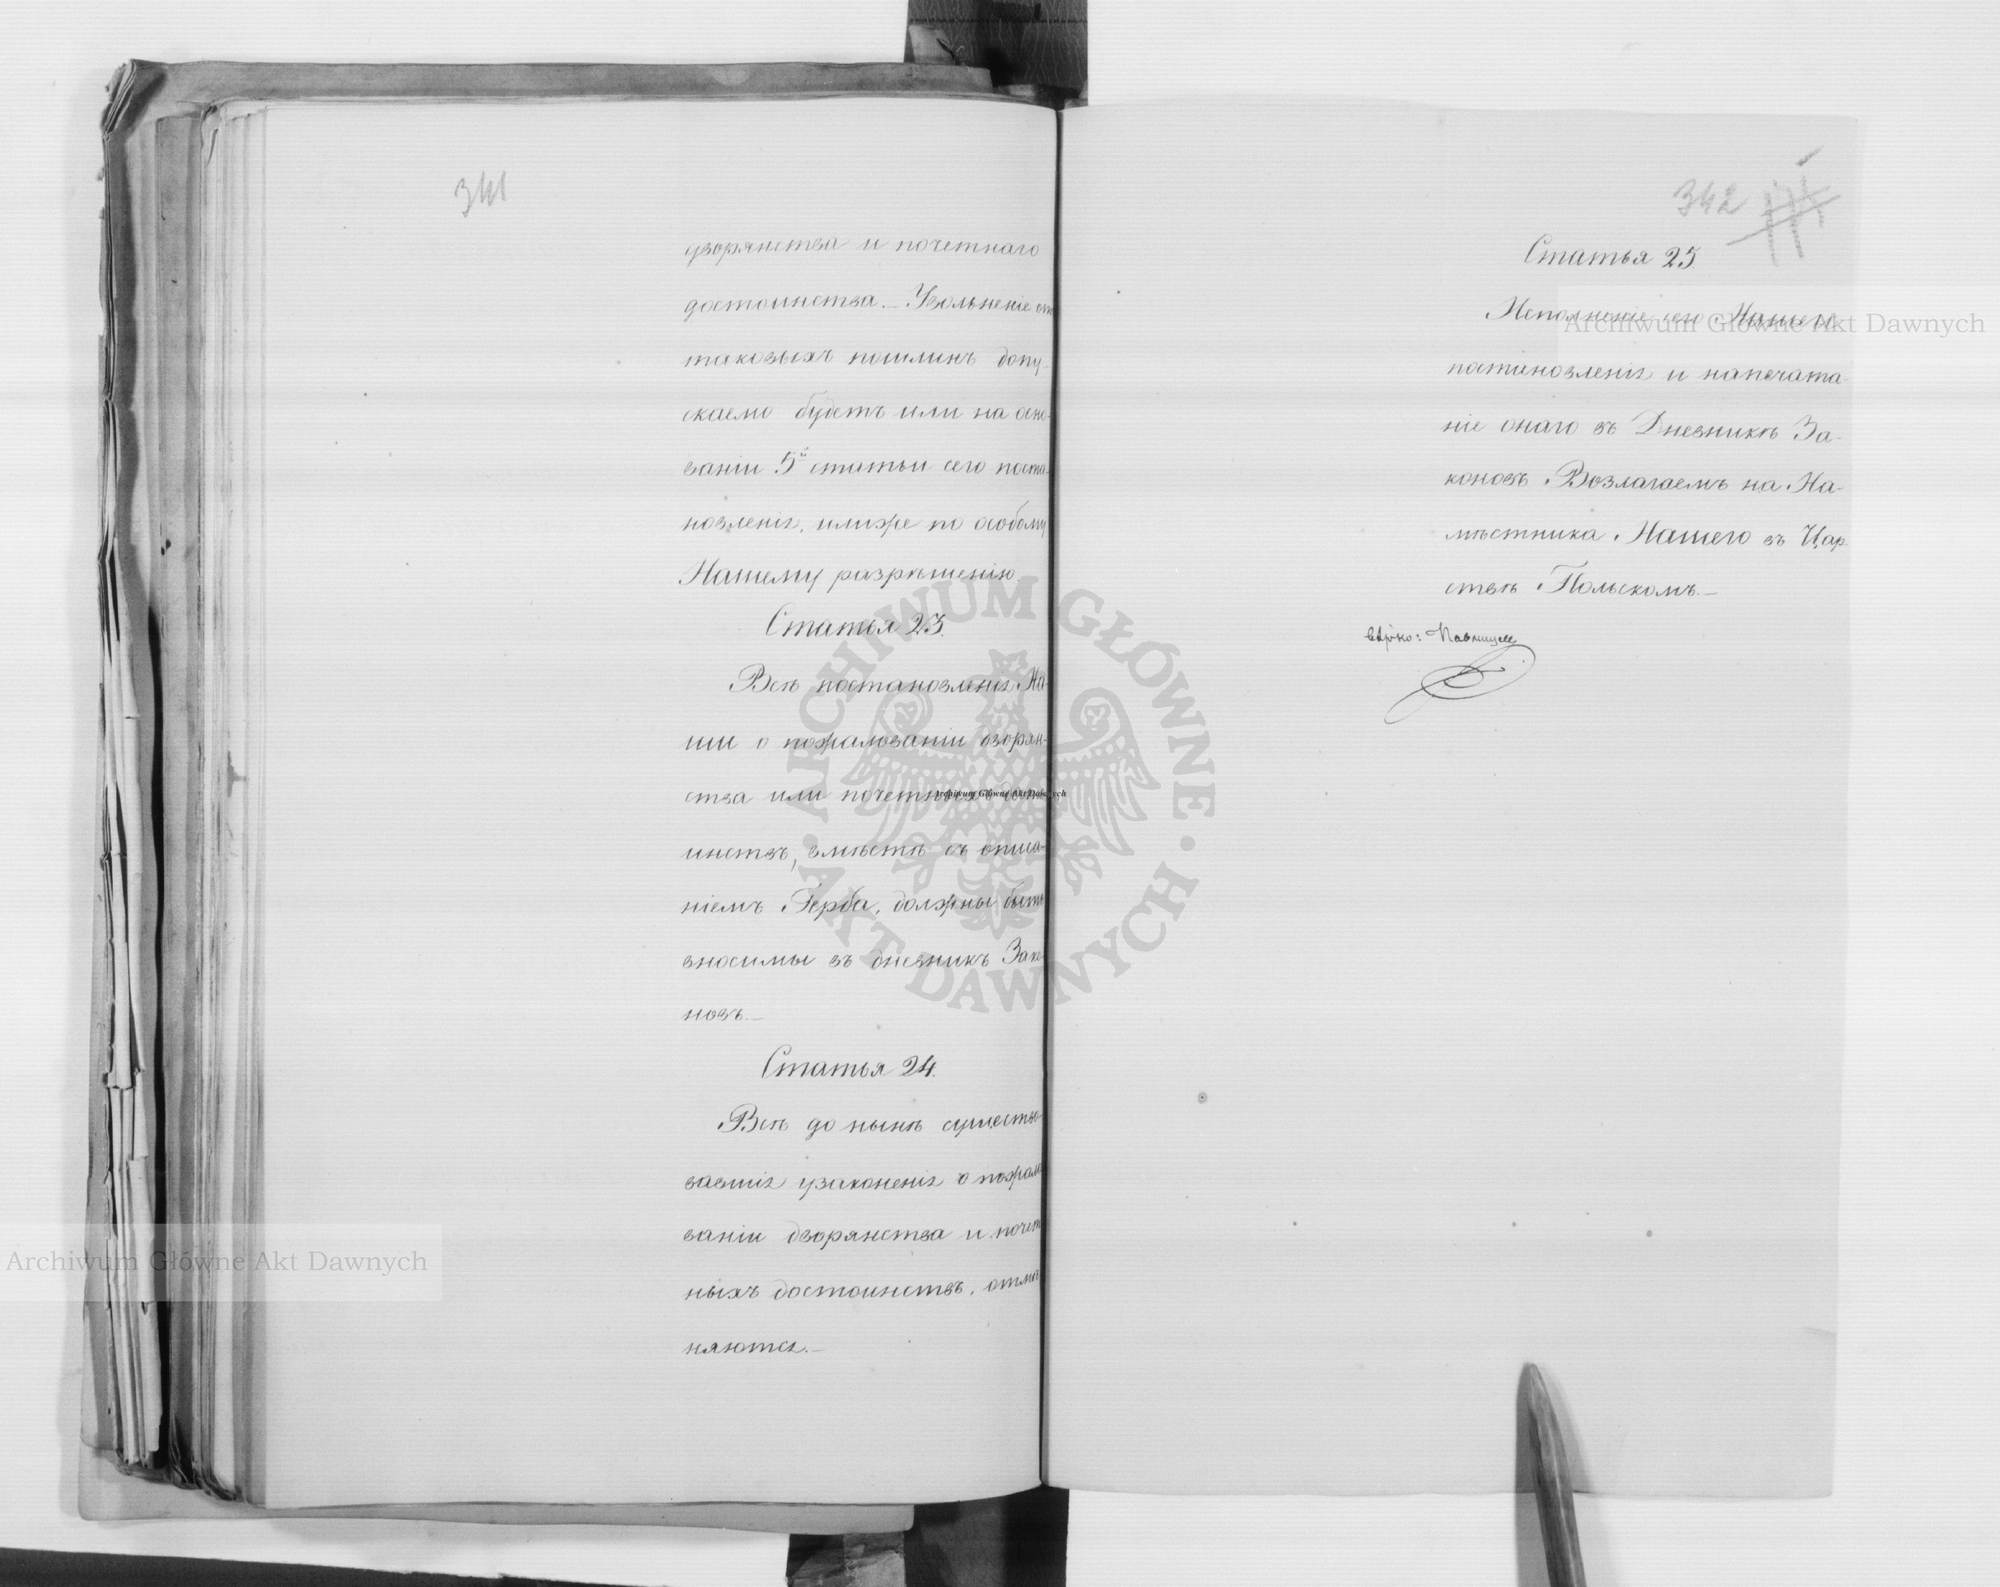 341
дворянства и почетнаго
достоинства. — Увольненіе отъ
таковыхъ пошлинъ допу-
скаемо будетъ или на осно-
ваніи 5й статьи сего поста-
новленія, или же по особому
Нашему разрѣшенію.
Статья 23.
Всѣ постановленія На-
ши о пожалованіи дворян-
ства или почетныхъ досто-
инствъ, вмѣстѣ съ описа-
ніемъ Герба, должны быть
вносимы въ дневникъ Зако-
новъ. —
Статья 24.
Всѣ до нынѣ существо-
вавшія узаконенія о пожало-
ваніи дворянства и почет-
ныхъ достоинствъ, отмѣ-
няются. —
342
Статья 25.
Исполненіе сего Нашего
постановленія и напечата-
ніе онаго въ Дневникѣ За-
коновъ Возлагаемъ на На-
мѣстника Нашего въ Цар-
ствѣ Польскомъ. —
вѣрно:
Archiwum Główne Akt Dawnych
Archiwum Główne Akt Dawnych
Archiwum Główne Akt Dawnych
ARCHIWUM GŁÓWNE · AKT DAWNYCH ·